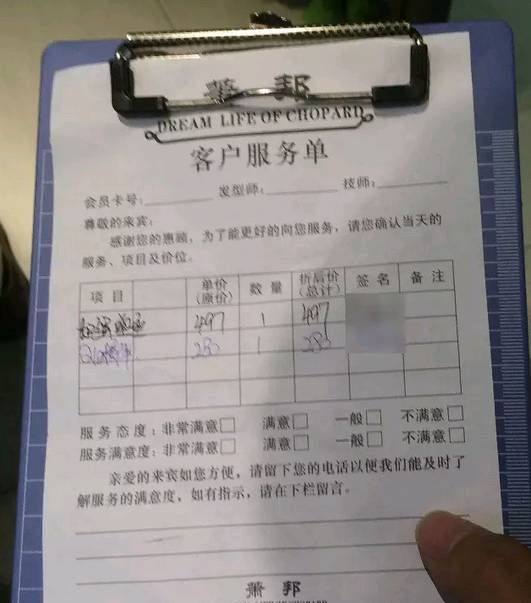 萧 邦
DREAM LIFE OF CHOPARD
客户服务单
会员卡号： 发型师： 技师：
尊敬的来宾：
感谢您的惠顾，为了能更好的向您服务，请您确认当天的
服务、项目及价位。
项 目 单价（原价） 数 量 折后价（总计） 签 名 备 注
497 1 497
230 1 230
服 务 态 度：非常满意□ 满意□ 一般□ 不满意□
服务满意度：非常满意□ 满意□ 一般□ 不满意□
亲爱的来宾如您方便，请留下您的电话以便我们能及时了
解服务的满意度，如有指示，请在下栏留言。
萧 邦